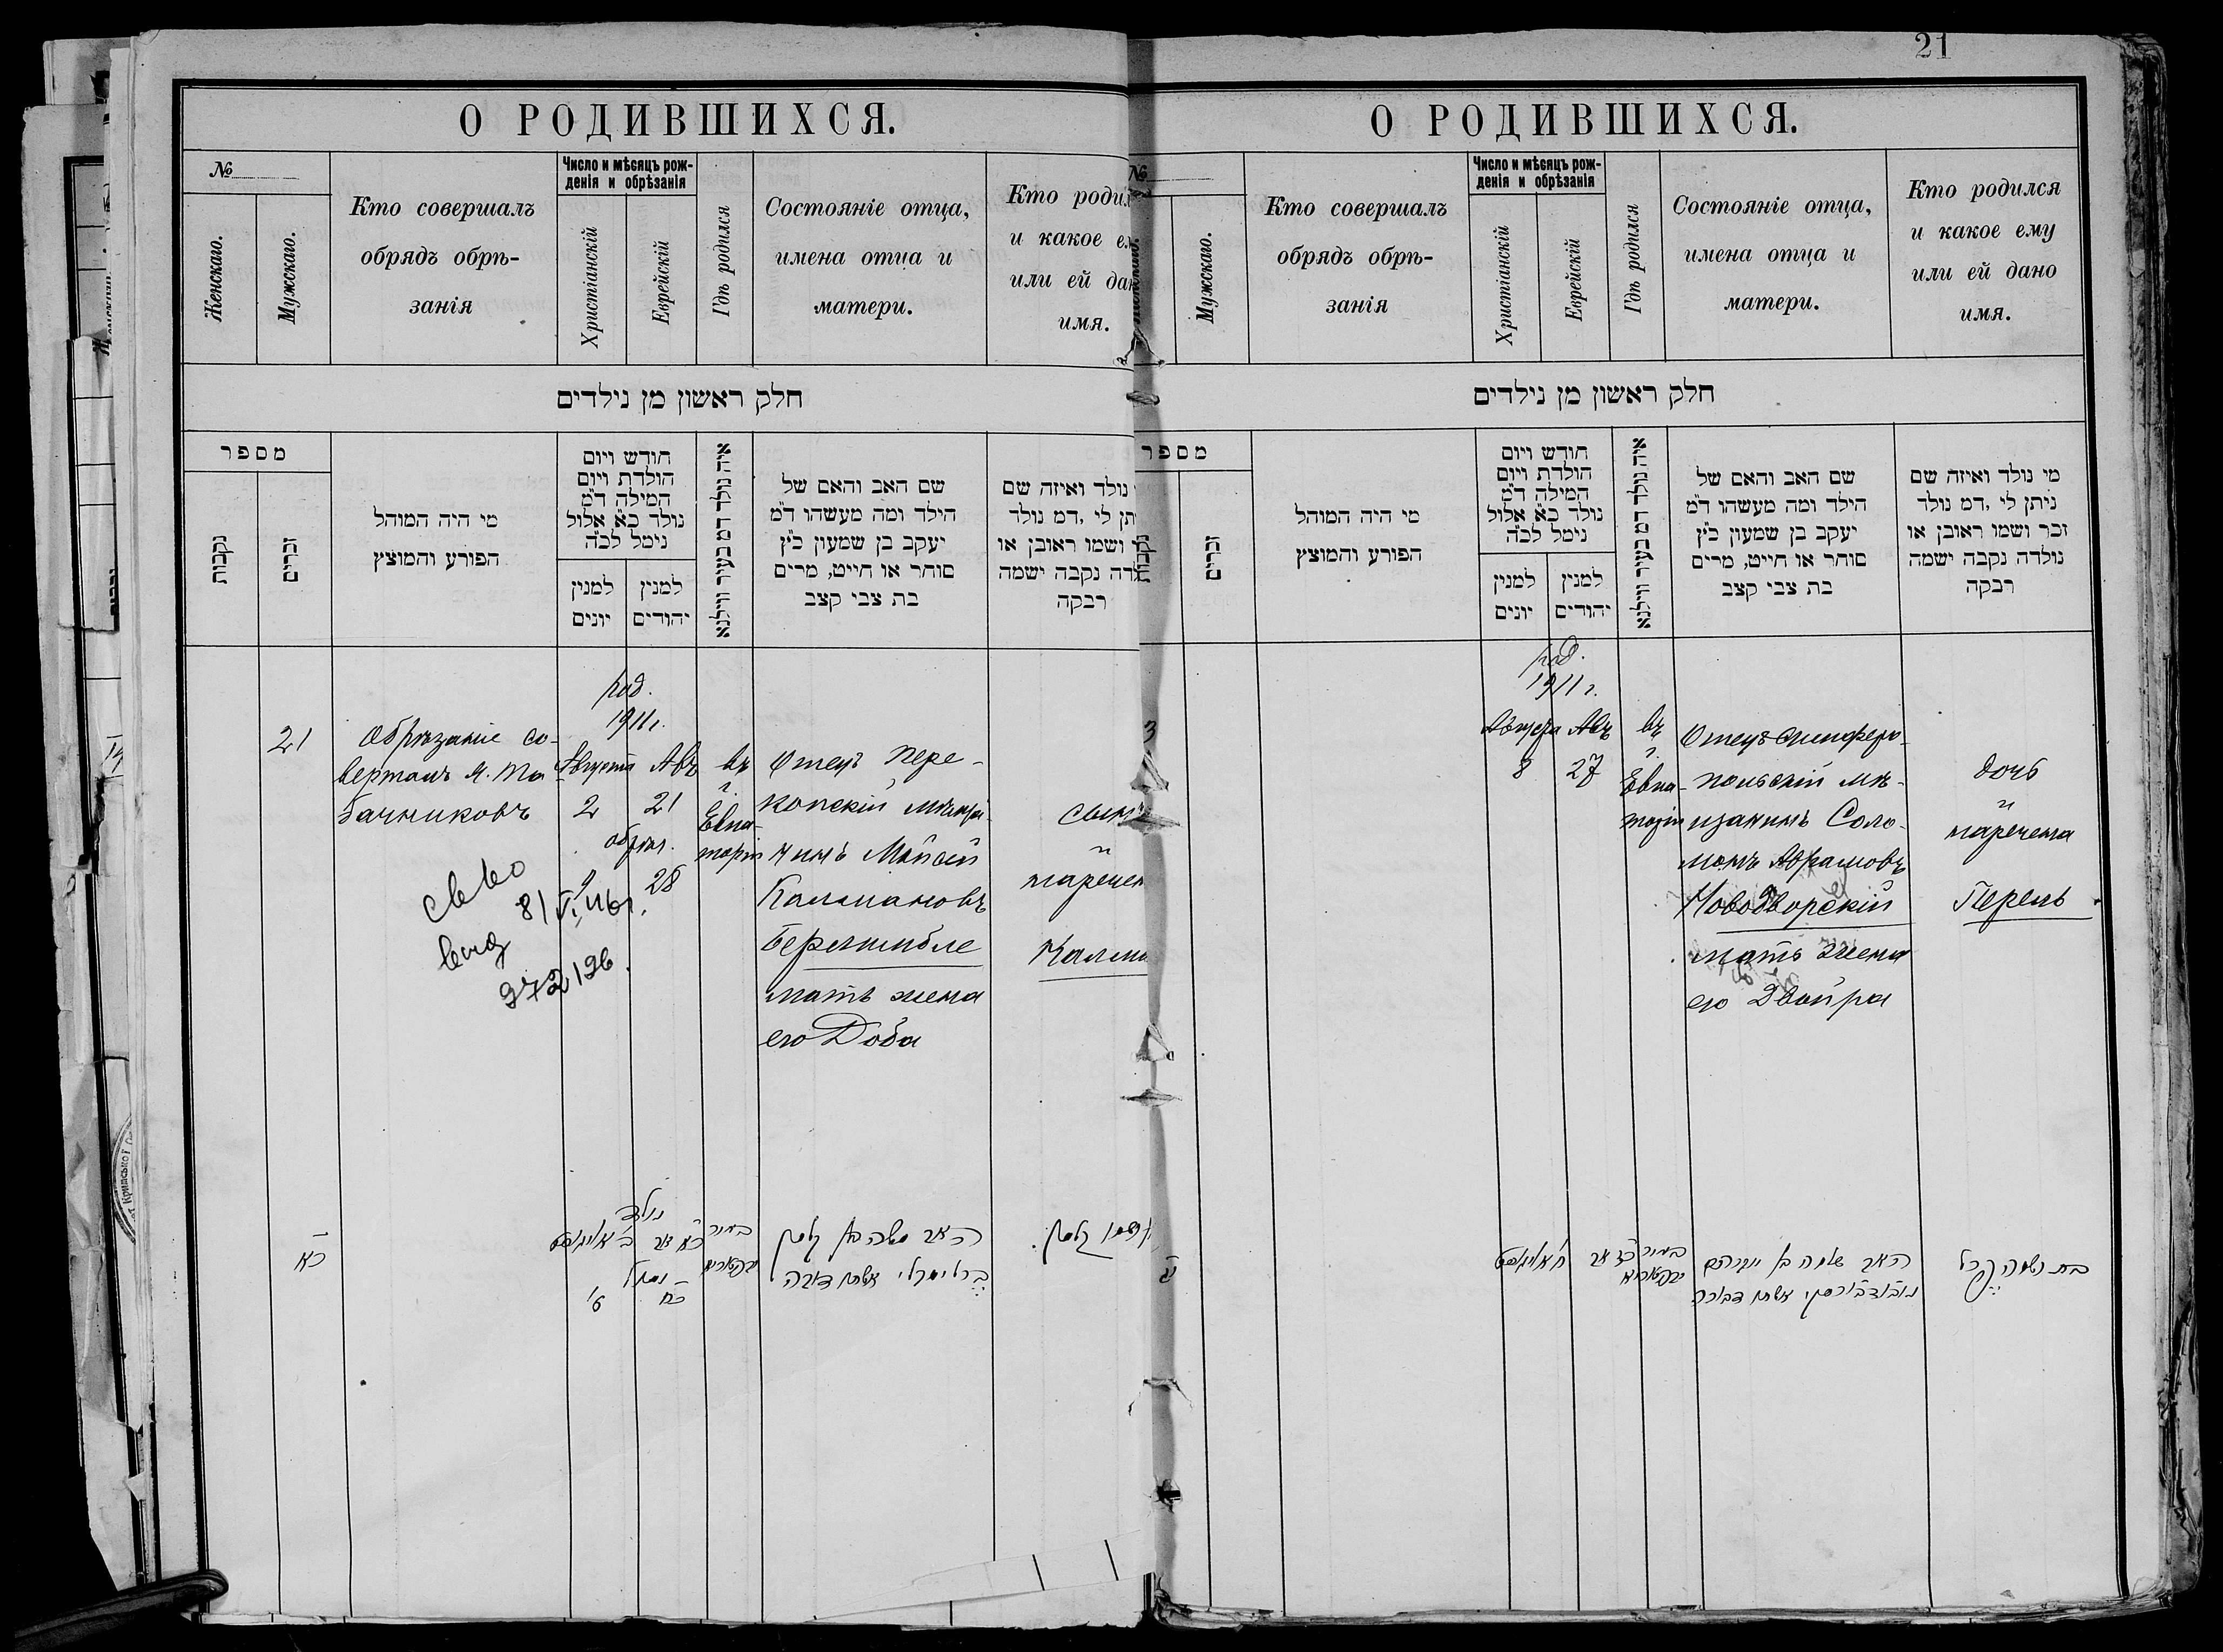 21
О РОДИВШИХСЯ.
№
Женскаго.
Мужскаго.
Кто совершалъ
обрядъ обрѣ-
занія
Число и мѣсяцъ рож-
денія и обрѣзанія
Христіанскій
Еврейскій
Гдѣ родился
Состояніе отца,
имена отца и
матери.
Кто родил
и какое ем
или ей дан
имя.
חלק ראשון מן נילדים
מספר
נקבות
זכרים
מי היה המוהל
הפורע והמוצץ
חודש ויום
הולדת ויום
המילה ד״מ
נולד כ״א אלול
נימל לכ״ה
למנין
יונים
למנין
יהודים
איה נולד דמ בעיר ווילנא
שם האב והאם של
הילד ומה מעשהו ד״מ
יעקב בן שמעון כ״ץ
סוחר או חייט, מרים
בת צבי קצב
נולד ואיזה שם
תן לי ,דמ נולד
ושמו ראובן או
לדה נקבה ישמה
רבקה
21
Обрѣзаніе со-
вершалъ М. Та-
бачниковъ
род.
1911 г.
Августа Авъ
2 21
обрѣз.
9 28
въ
г.
Евпа-
торіи
Отецъ Пере-
копскій мѣща-
нинъ Мойсей
Калмановъ
Беренштбле
мать жена
его Доба
сынъ
и
наречен
Калма
св-во
8/VI 1916 г.
выд
972 126
כא
נולד
כא אב
ב אויגוסט
נימל
כח
ט
בעיר
האב משה בן קלמן
אשתו דובה
ושמו קלמן
О РОДИВШИХСЯ.
№
Мужскаго.
Кто совершалъ
обрядъ обрѣ-
занія
Число и мѣсяцъ рож-
денія и обрѣзанія
Христіанскій
Еврейскій
Гдѣ родился
Состояніе отца,
имена отца и
матери.
Кто родился
и какое ему
или ей дано
имя.
חלק ראשון מן נילדים
מספר
נקבות
זכרים
מי היה המוהל
הפורע והמוצץ
חודש ויום
הולדת ויום
המילה ד״מ
נולד כ״א אלול
נימל לכ״ה
למנין
יונים
למנין
יהודים
איה נולד דמ בעיר ווילנא
שם האב והאם של
הילד ומה מעשהו ד״מ
יעקב בן שמעון כ״ץ
סוחר או חייט, מרים
בת צבי קצב
מי נולד ואיזה שם
ניתן לי ,דמ נולד
זכר ושמו ראובן או
נולדה נקבה ישמה
רבקה
род.
1911 г.
Августа Авъ
8 27
въ
г.
Евпа-
торіи
Отецъ симферо-
польскій мѣ-
щанинъ Соло-
монъ Абрамовъ
Новодворскій
мать жена
его Двойра
дочь
и
наречена
Перель
ח אויגוסט
כז אב
בעיר
האב שלמה בן אברהם
נובודבורסקי אשתו דבורה
בת ושמה פרל